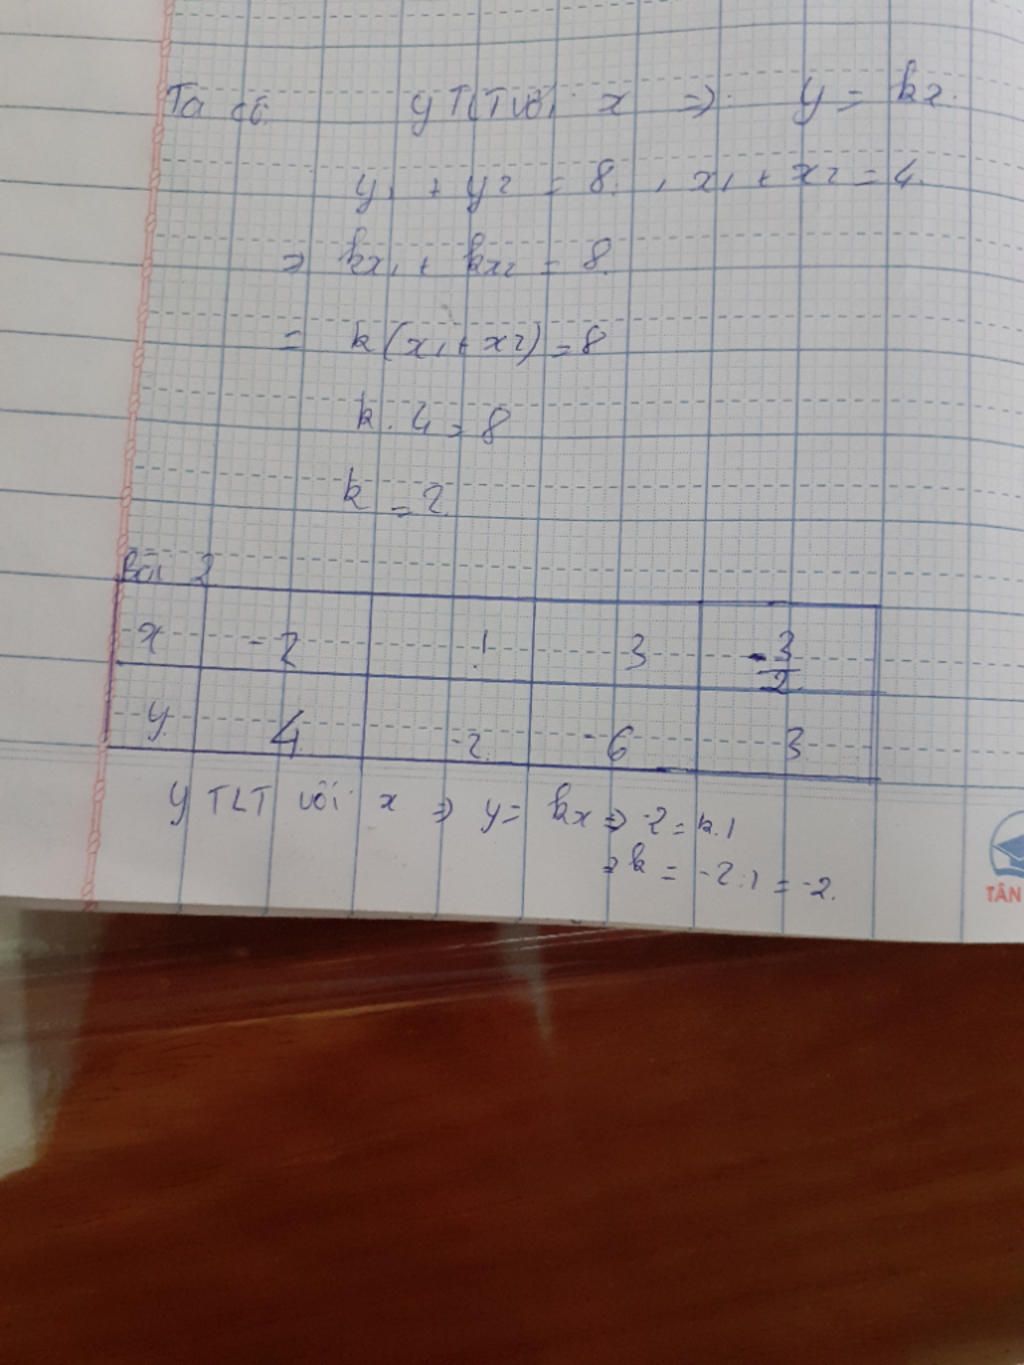 Ta có y TLT với x => y = kx.
y1 + y2 = 8. , x1 + x2 = 4.
=> kx1 + kx2 = 8.
= k(x1 + x2) = 8
k . 4 = 8
k = 2.
Bài 2
x -2 1 3 -3/2
y. 4. -2. -6 3
y TLT với x => y = kx => -2 = k.1
=> k = -2:1 = -2.
TÂN